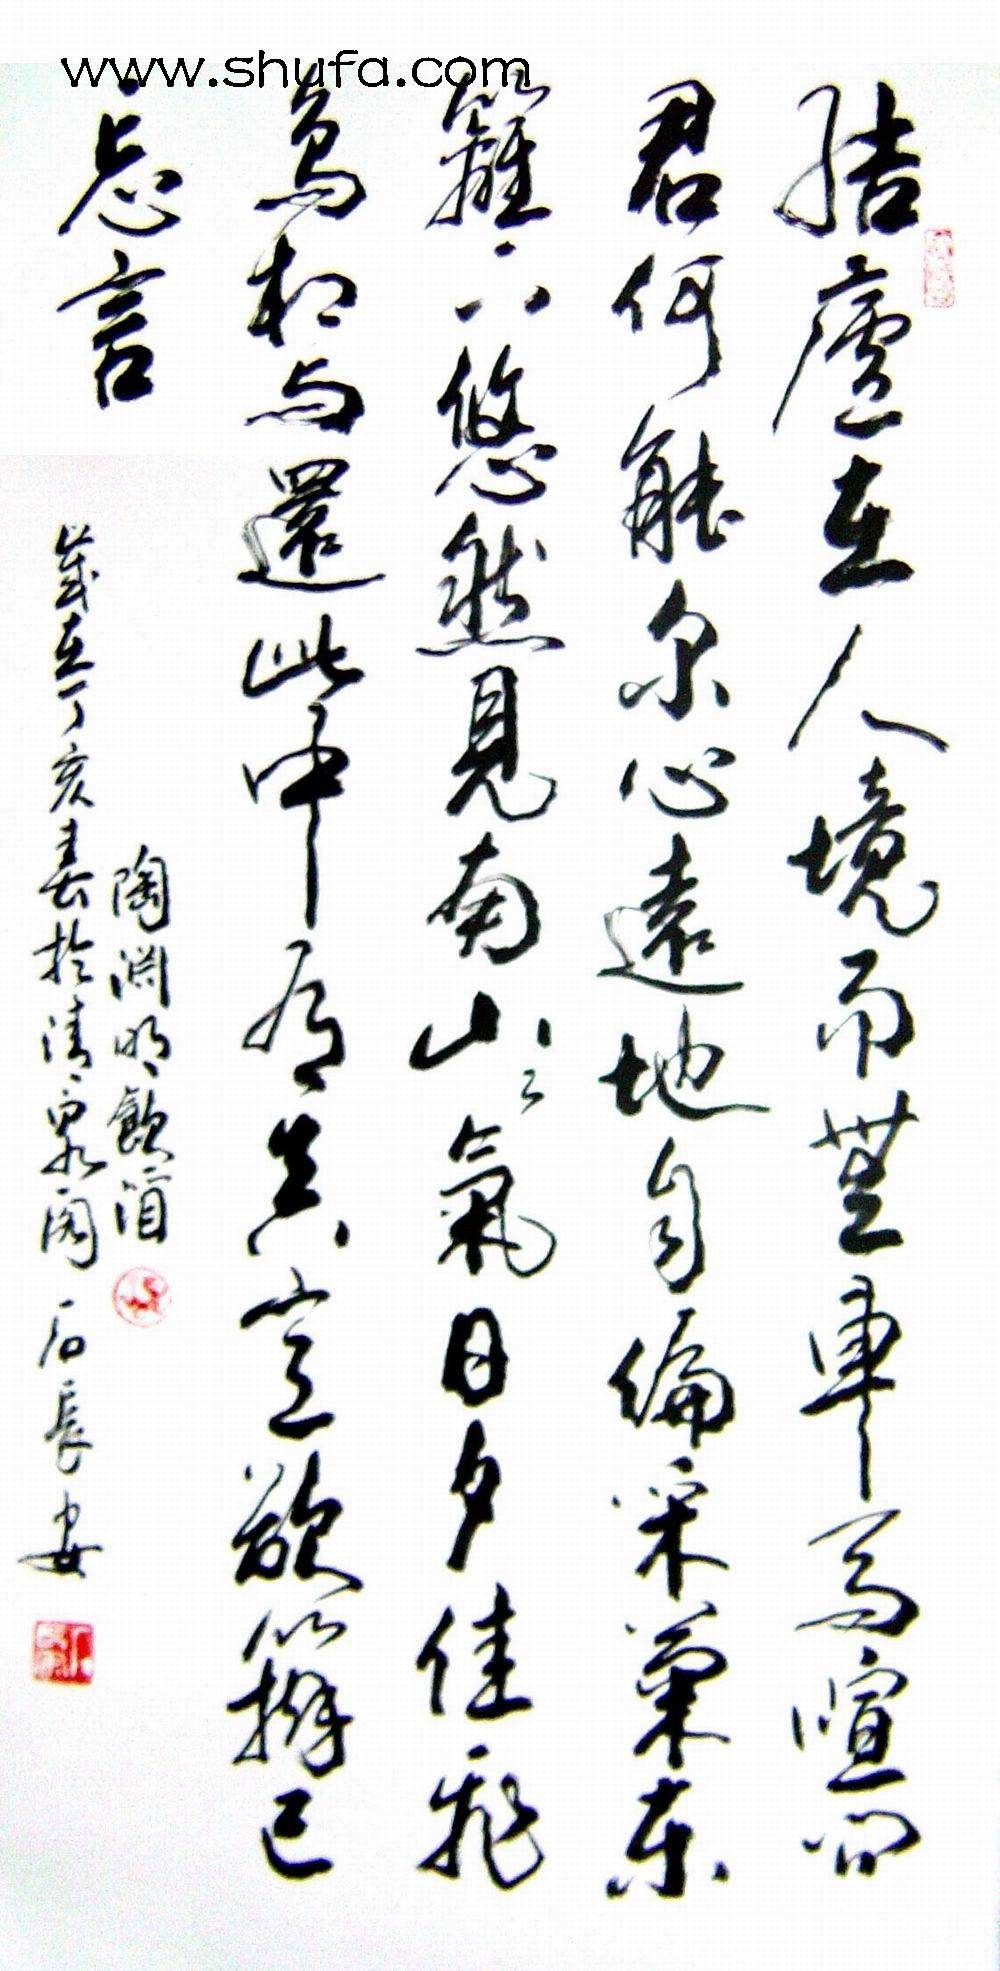 www.shufa.com
結廬在人境而無車馬喧問
君何能尔心遠地自偏采菊東
籬下悠然見南山々氣日夕佳飛
鳥相与還此中有真意欲辨已
忘言
陶淵明飲酒
歲在丁亥春於清泉閣